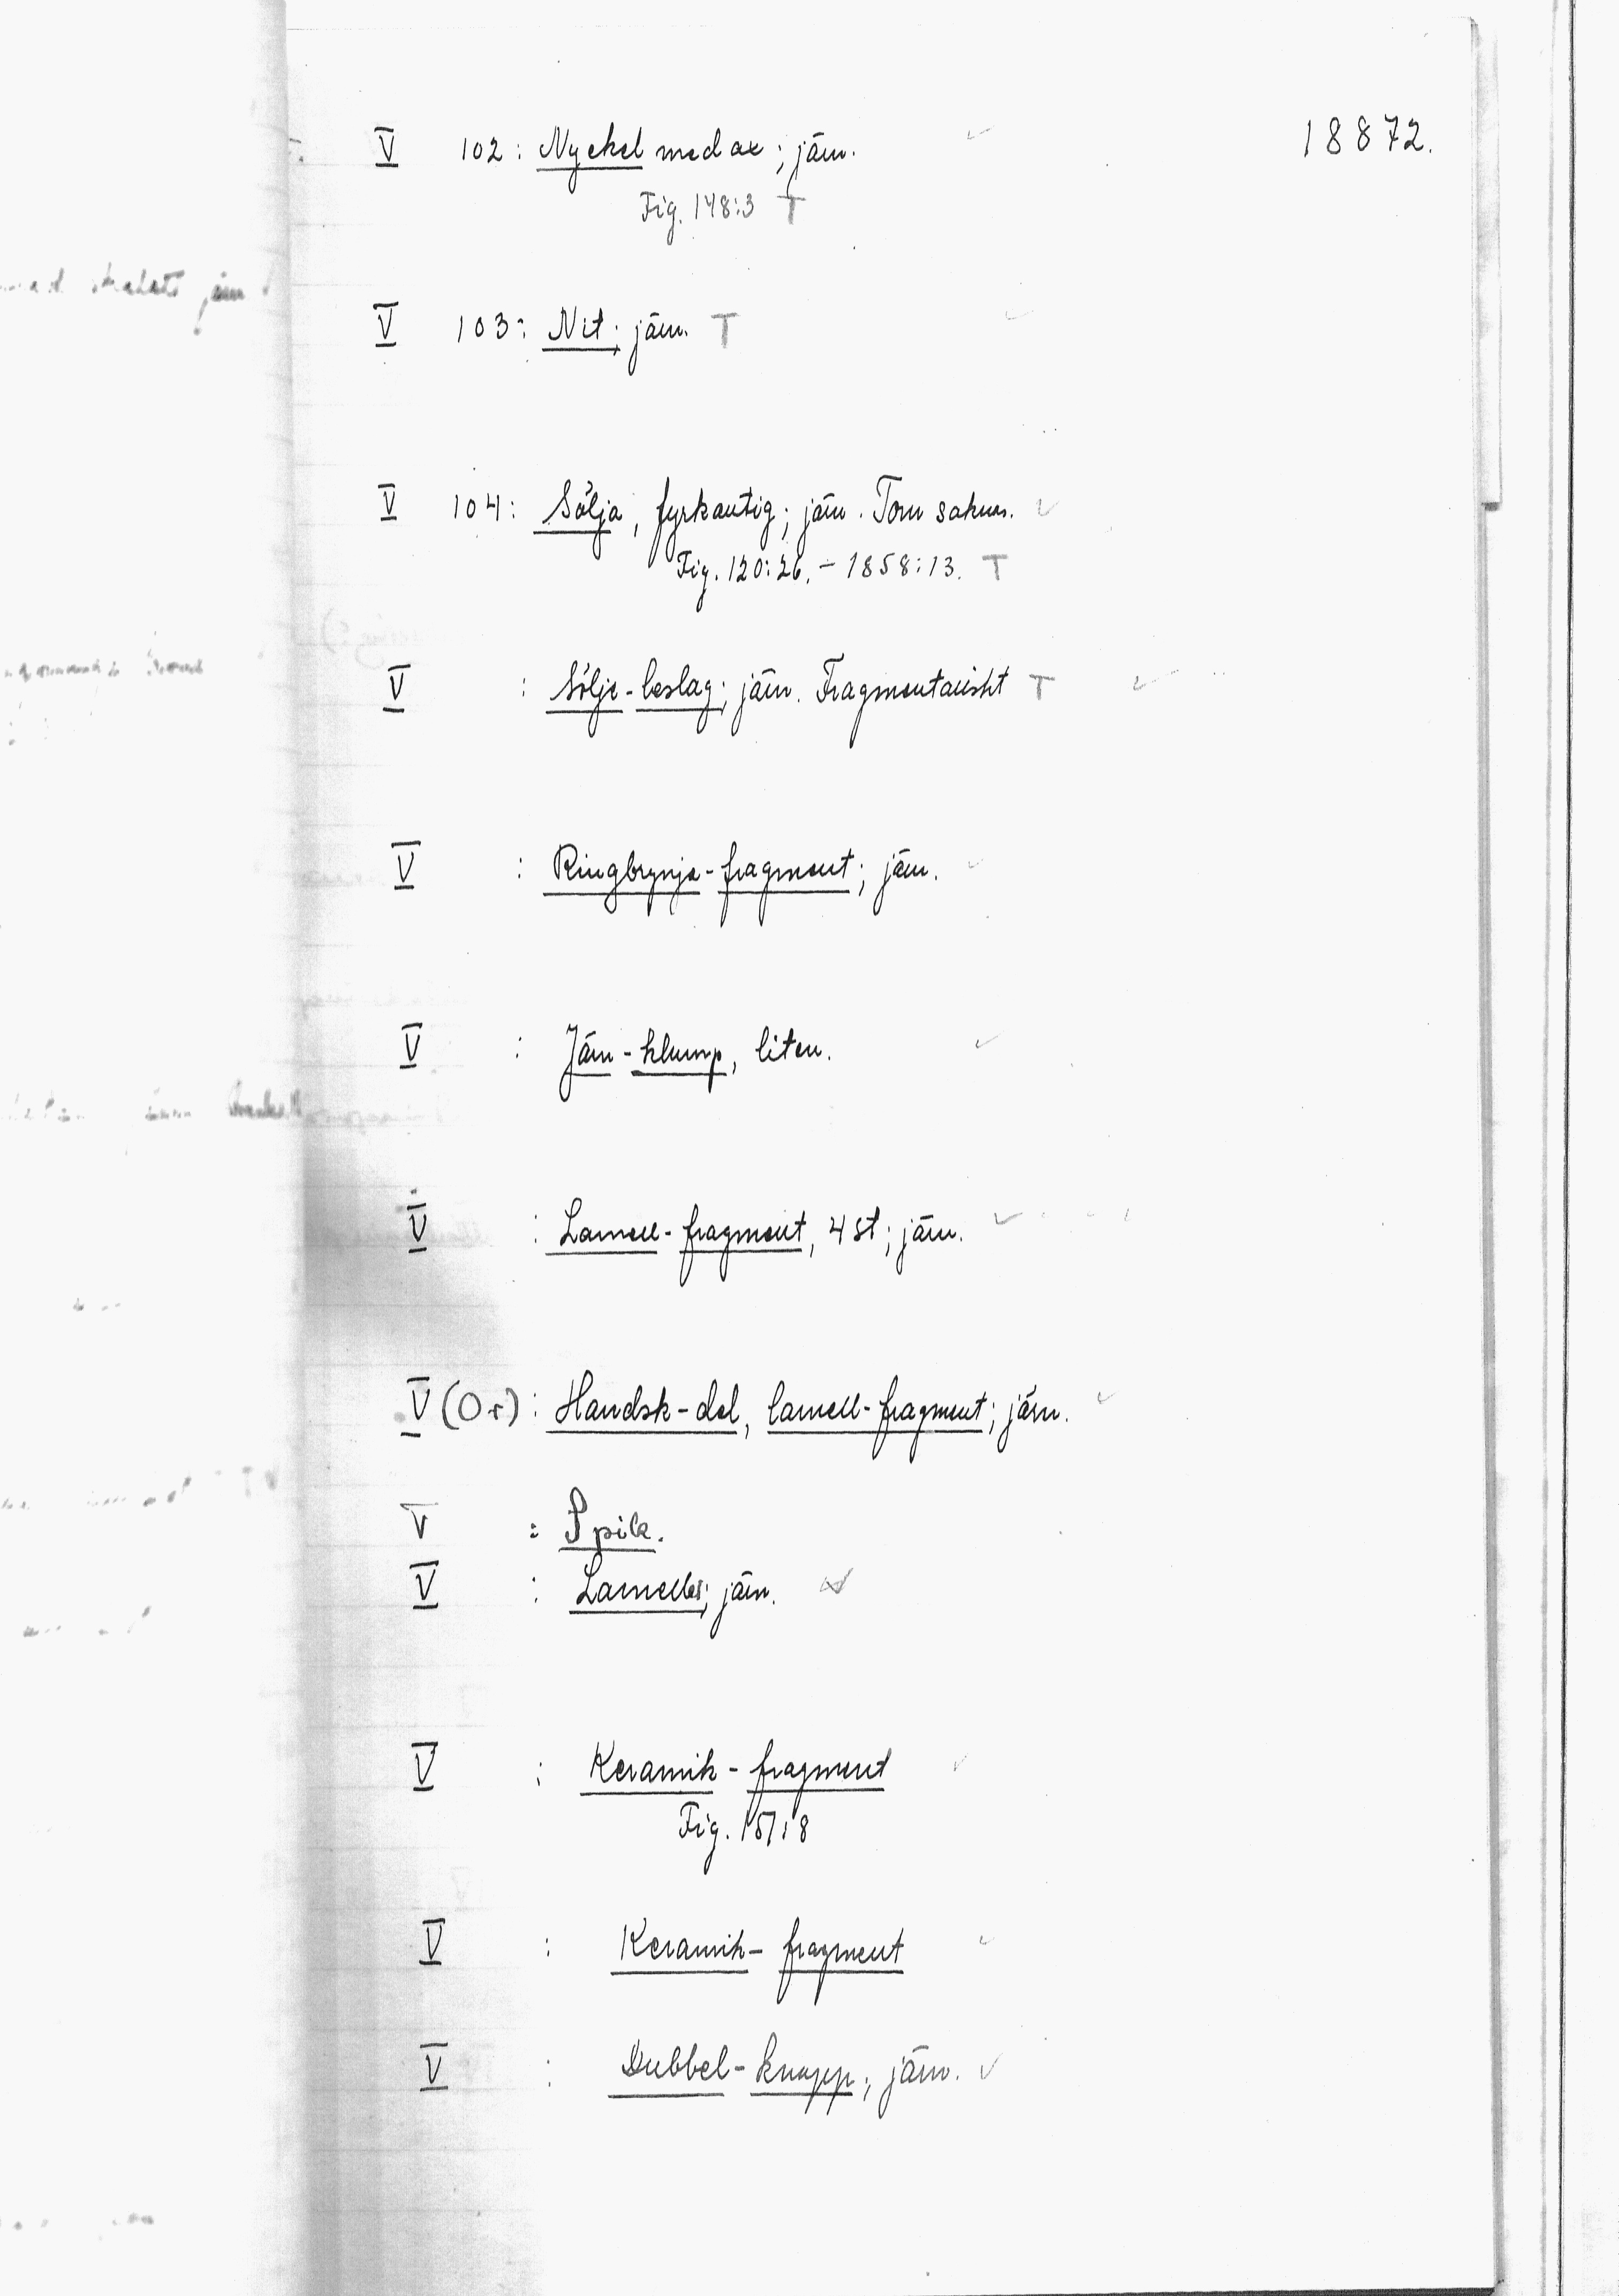 18872.
V 102: Nyckel med ax; järn.
Fig. 148:3 T
V 103: Nit; järn. T
V 104: Sölja, fyrkantig; järn. Torn saknas.
Fig. 120:26. – 1858:13. T
V : Sölje-beslag; järn. Fragmentariskt T
V : Ringbrynje-fragment; järn.
V : Järn-klump, liten.
V : Lamell-fragment, 4 st; järn.
V (Or) : Handsk-del, lamell-fragment; järn.
V : Spik.
V : Lameller; järn.
V : Keramik-fragment
Fig. 151:8
V : Keramik-fragment
V : Dubbel-knapp; järn.